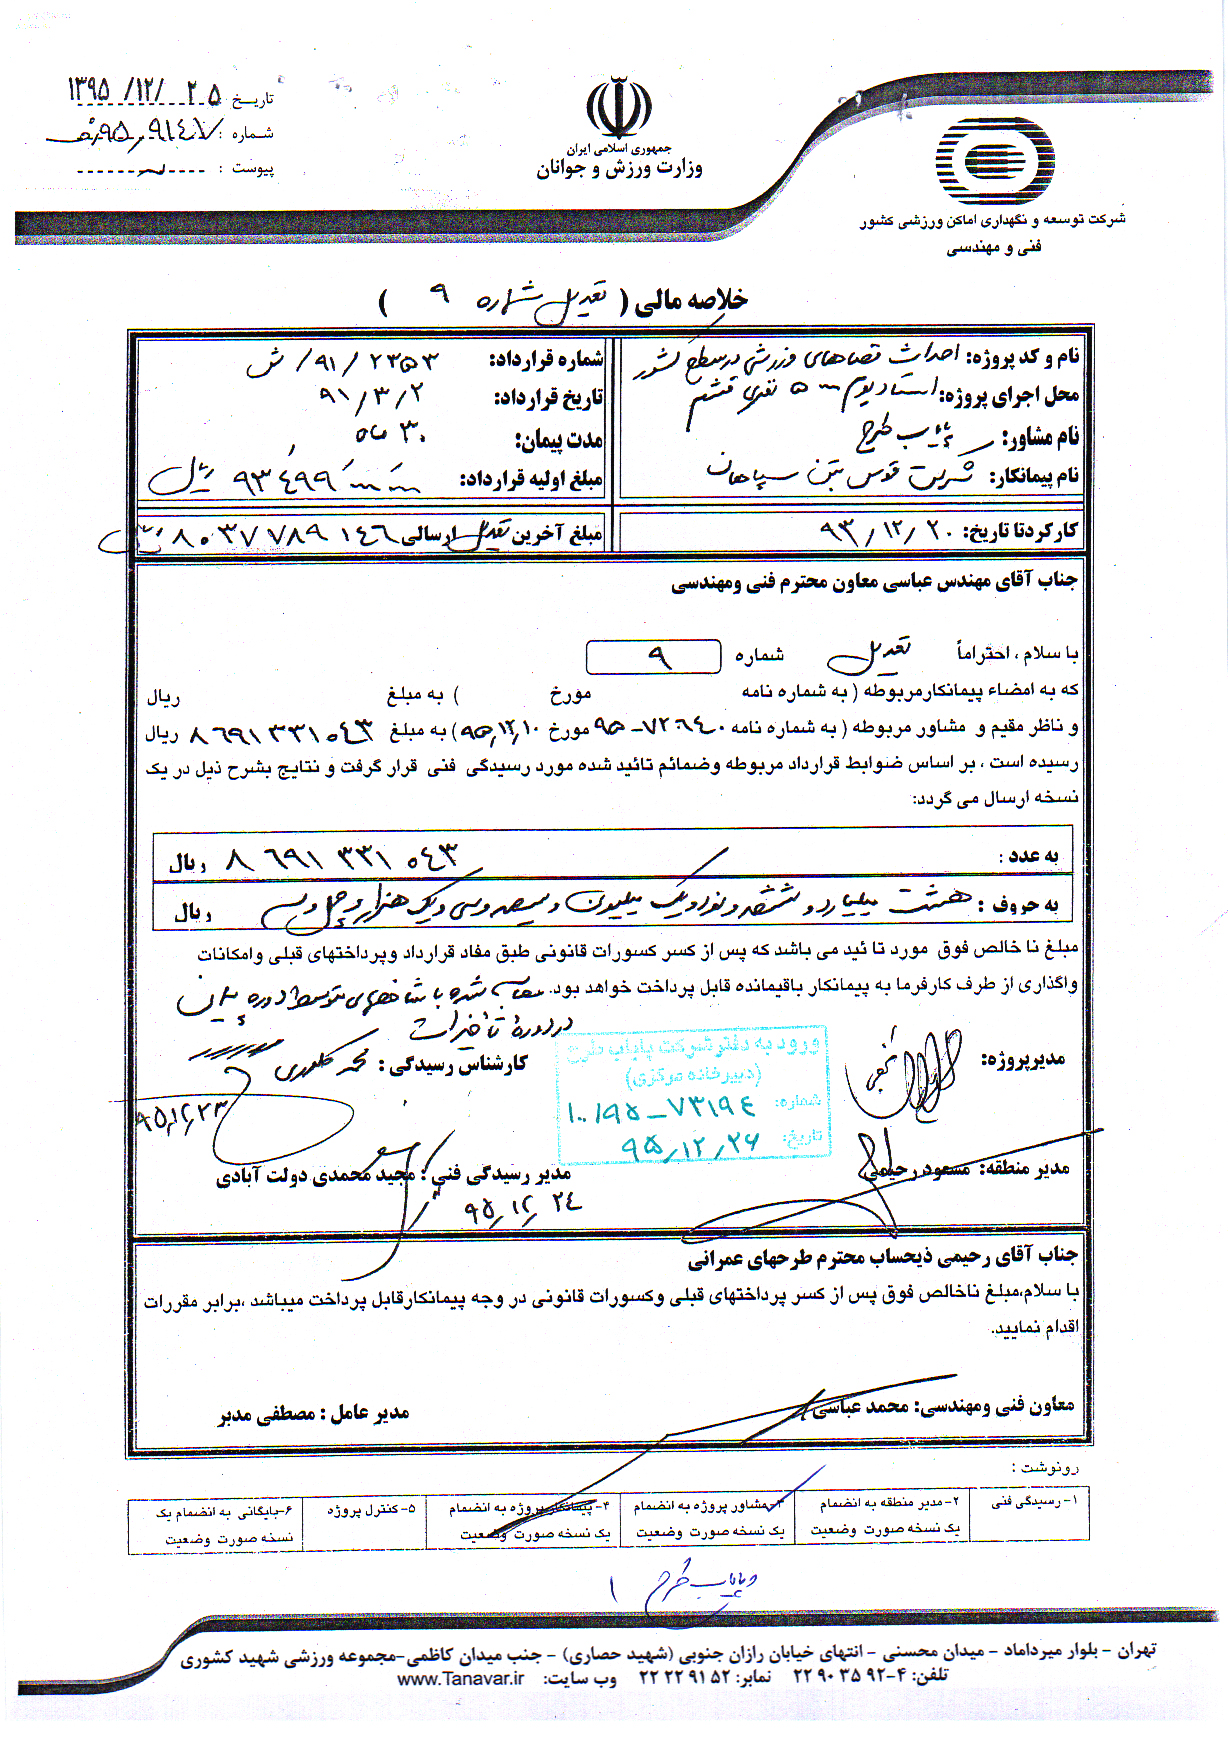 تاریخ : ۱۳۹۵/۱۲/۲۵
شماره : ۹۵٫۹۱۴۰۷
پیوست :
جمهوری اسلامی ایران
وزارت ورزش و جوانان
شرکت توسعه و نگهداری اماکن ورزشی کشور
فنی و مهندسی
خلاصه مالی ( تعدیل شماره ۹ )
نام و کد پروژه: احداث فضاهای ورزشی در سطح کشور
محل اجرای پروژه: استادیوم ۵۰۰۰ نفری قشم
نام مشاور: پایاب طرح
نام پیمانکار: شرکت قدس بتن سپاهان
شماره قرارداد: ۹۱/۲۳۵۳/ش
تاریخ قرارداد: ۹۱/۳/۲
مدت پیمان: ۳۰ ماه
مبلغ اولیه قرارداد: ۹۳٬۴۹۹٬۰۰۰٬۰۰۰ ریال
کارکرد تا تاریخ: ۹۳/۱۲/۲۰
مبلغ آخرین تعدیل ارسالی ۸۰۳۷۷۸۹۱۴۶ ریال
جناب آقای مهندس عباسی معاون محترم فنی ومهندسی
با سلام ، احتراماً تعدیل شماره ۹
که به امضاء پیمانکارمربوطه ( به شماره نامه مورخ ) به مبلغ ریال
و ناظر مقیم و مشاور مربوطه ( به شماره نامه ۷۲۶۴۰-۹۵ مورخ ۹۵٫۱۲٫۱۰) به مبلغ ۸۶۹۱۳۳۱۰۴۳ ریال
رسیده است ، بر اساس ضوابط قرارداد مربوطه وضمائم تائید شده مورد رسیدگی فنی قرار گرفت و نتایج بشرح ذیل در یک
نسخه ارسال می گردد:
به عدد : ۸۶۹۱۳۳۱۰۴۳ ریال
به حروف : هشت میلیارد و ششصد و نود و یک میلیون و سیصد و سی و یک هزار و چهل و سه ریال
مبلغ نا خالص فوق مورد تا ئید می باشد که پس از کسر کسورات قانونی طبق مفاد قرارداد وپرداختهای قبلی وامکانات
واگذاری از طرف کارفرما به پیمانکار باقیمانده قابل پرداخت خواهد بود. محاسبه شده با شاخصهای متوسط دوره پیمان
در دوره تأخیرات
مدیرپروژه:
کارشناس رسیدگی :
۹۵٫۱۲٫۲۳
ورود به دفتر شرکت پایاب طرح
(دبیرخانه مرکزی)
شماره: ۱۰۰/۹۵-۷۳۱۹۴
تاریخ: ۹۵٫۱۲٫۲۶
مدیر منطقه: مسعود رحیمی
مدیر رسیدگی فنی : مجید محمدی دولت آبادی
۹۵٫۱۲٫۲۴
جناب آقای رحیمی ذیحساب محترم طرحهای عمرانی
با سلام،مبلغ ناخالص فوق پس از کسر پرداختهای قبلی وکسورات قانونی در وجه پیمانکارقابل پرداخت میباشد ،برابر مقررات
اقدام نمایید.
معاون فنی ومهندسی: محمد عباسی
مدیر عامل : مصطفی مدبر
رونوشت :
۱- رسیدگی فنی
۲-مدیر منطقه به انضمام
یک نسخه صورت وضعیت
۳-مشاور پروژه به انضمام
یک نسخه صورت وضعیت
۴-پیمانکار پروژه به انضمام
یک نسخه صورت وضعیت
۵- کنترل پروژه
۶-بایگانی به انضمام یک
نسخه صورت وضعیت
پایاب طرح ۱
تهران - بلوار میرداماد - میدان محسنی - انتهای خیابان رازان جنوبی (شهید حصاری) - جنب میدان کاظمی-مجموعه ورزشی شهید کشوری
تلفن: ۴-۲۲۹۰۳۵۹۲ نمابر: ۲۲۲۲۹۱۵۲ وب سایت: www.Tanavar.ir